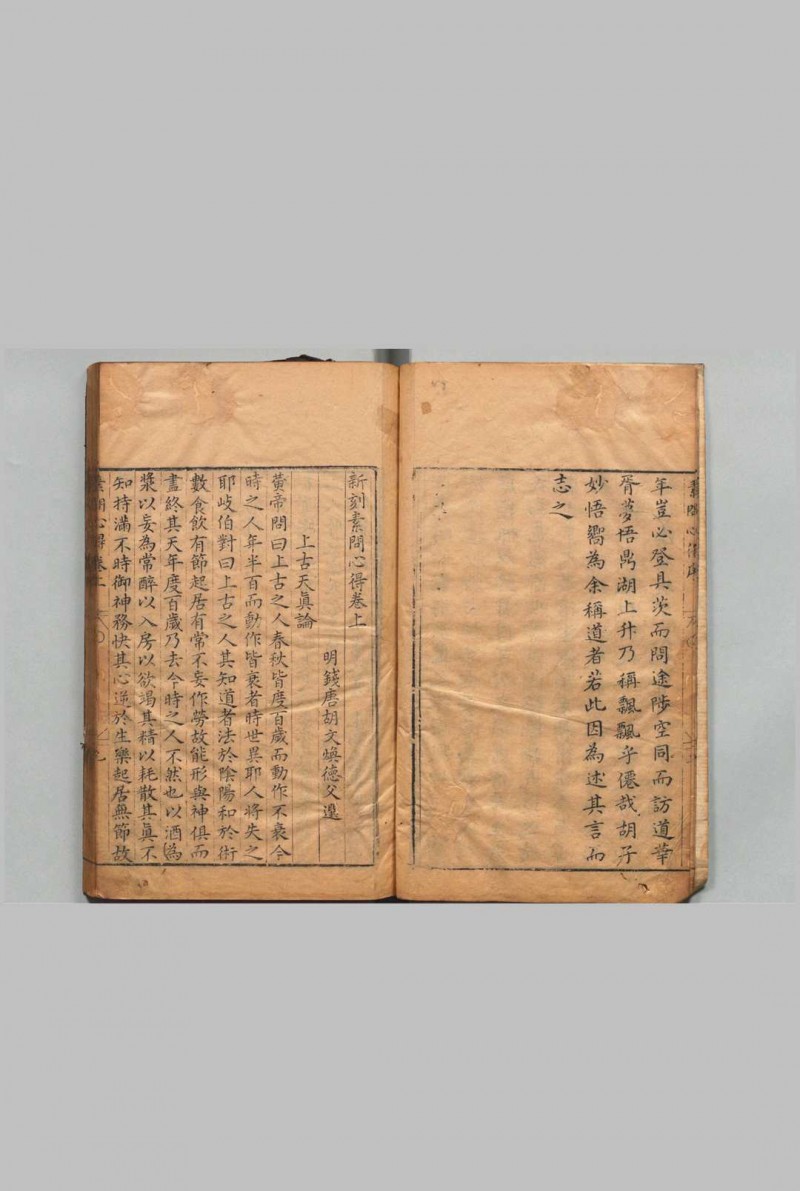 年豈必登具茨而問途陟空同而訪道華
胥夢悟鼎湖上升乃稱飄飄乎僊哉胡子
妙悟嚮為余稱道者若此因為述其言而
志之
新刻素問心得卷上
明錢唐胡文煥德父選
上古天眞論
黃帝問曰上古之人春秋皆度百歲而動作不衰今
時之人年半百而動作皆衰者時世異耶人將失之
耶岐伯對曰上古之人其知道者法於陰陽和於術
數食飲有節起居有常不妄作勞故能形與神俱而
盡終其天年度百歲乃去今時之人不然也以酒為
漿以妄為常醉以入房以欲竭其精以耗散其眞不
知持滿不時御神務快其心逆於生樂起居無節故
素問心得卷上